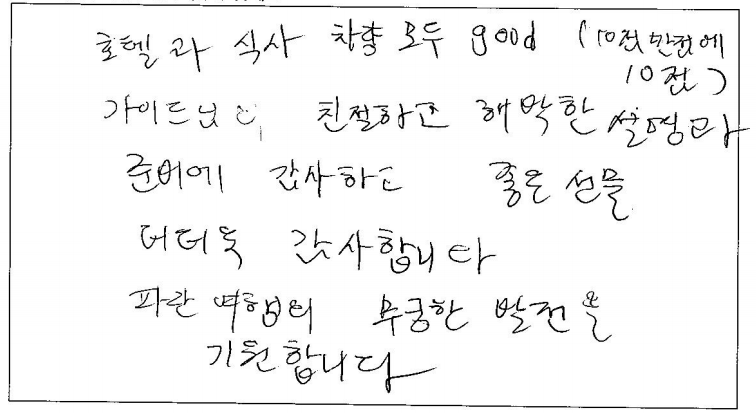 호텔과 식사 차량 모두 good (10점만점에
10점)
가이드님의 친절하고 해박한 설명과
준비에 감사하고 좋은 선물
더더욱 감사합니다
파란 여행의 무궁한 발전을
기원합니다